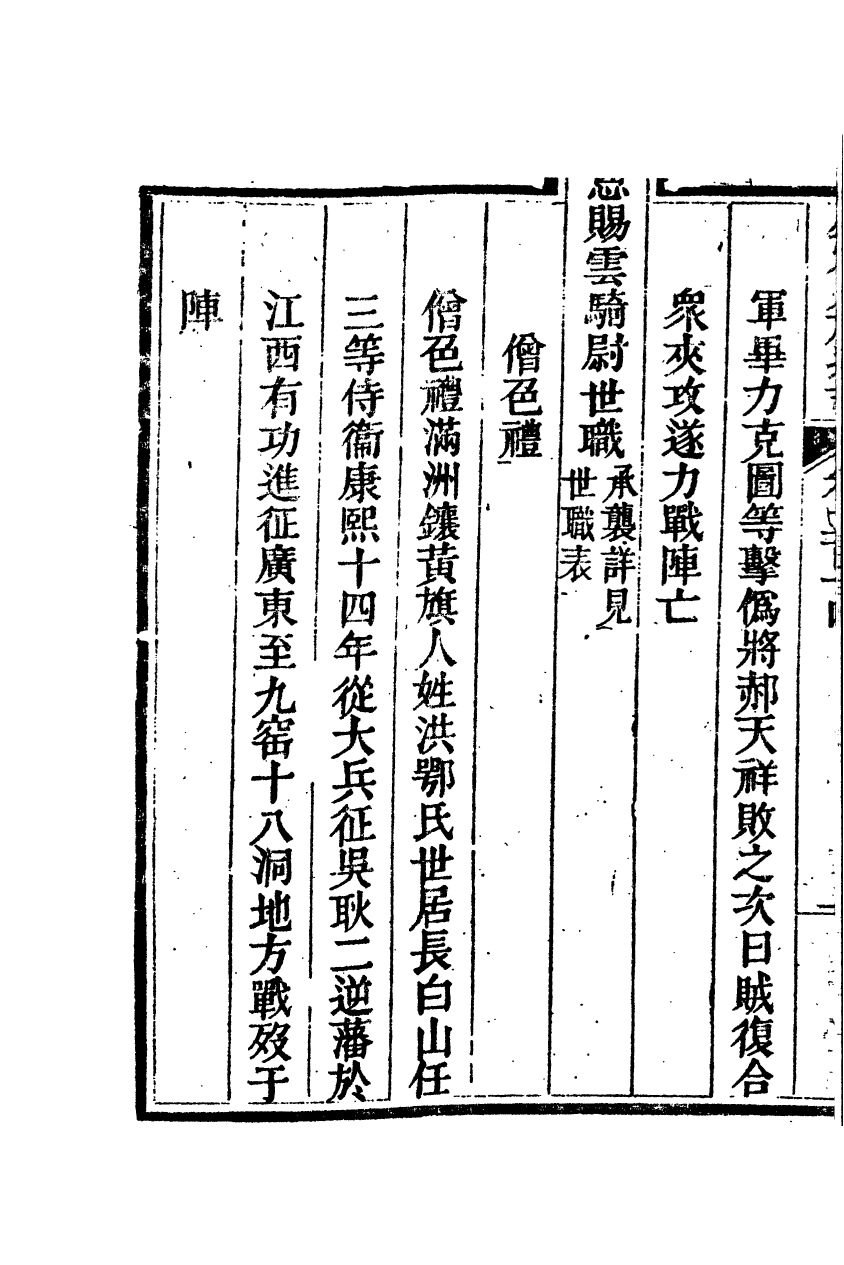 軍畢力克圖等擊僞將郝天祥敗之次日賊復合
衆夾攻遂力戰陣亡
恩賜雲騎尉世職承襲詳見世職表
僧色禮
僧色禮滿洲鑲黃旗人姓洪鄂氏世居長白山任
三等侍衞康熙十四年從大兵征吳耿二逆藩於
江西有功進征廣東至九窑十八洞地方戰歿于
陣